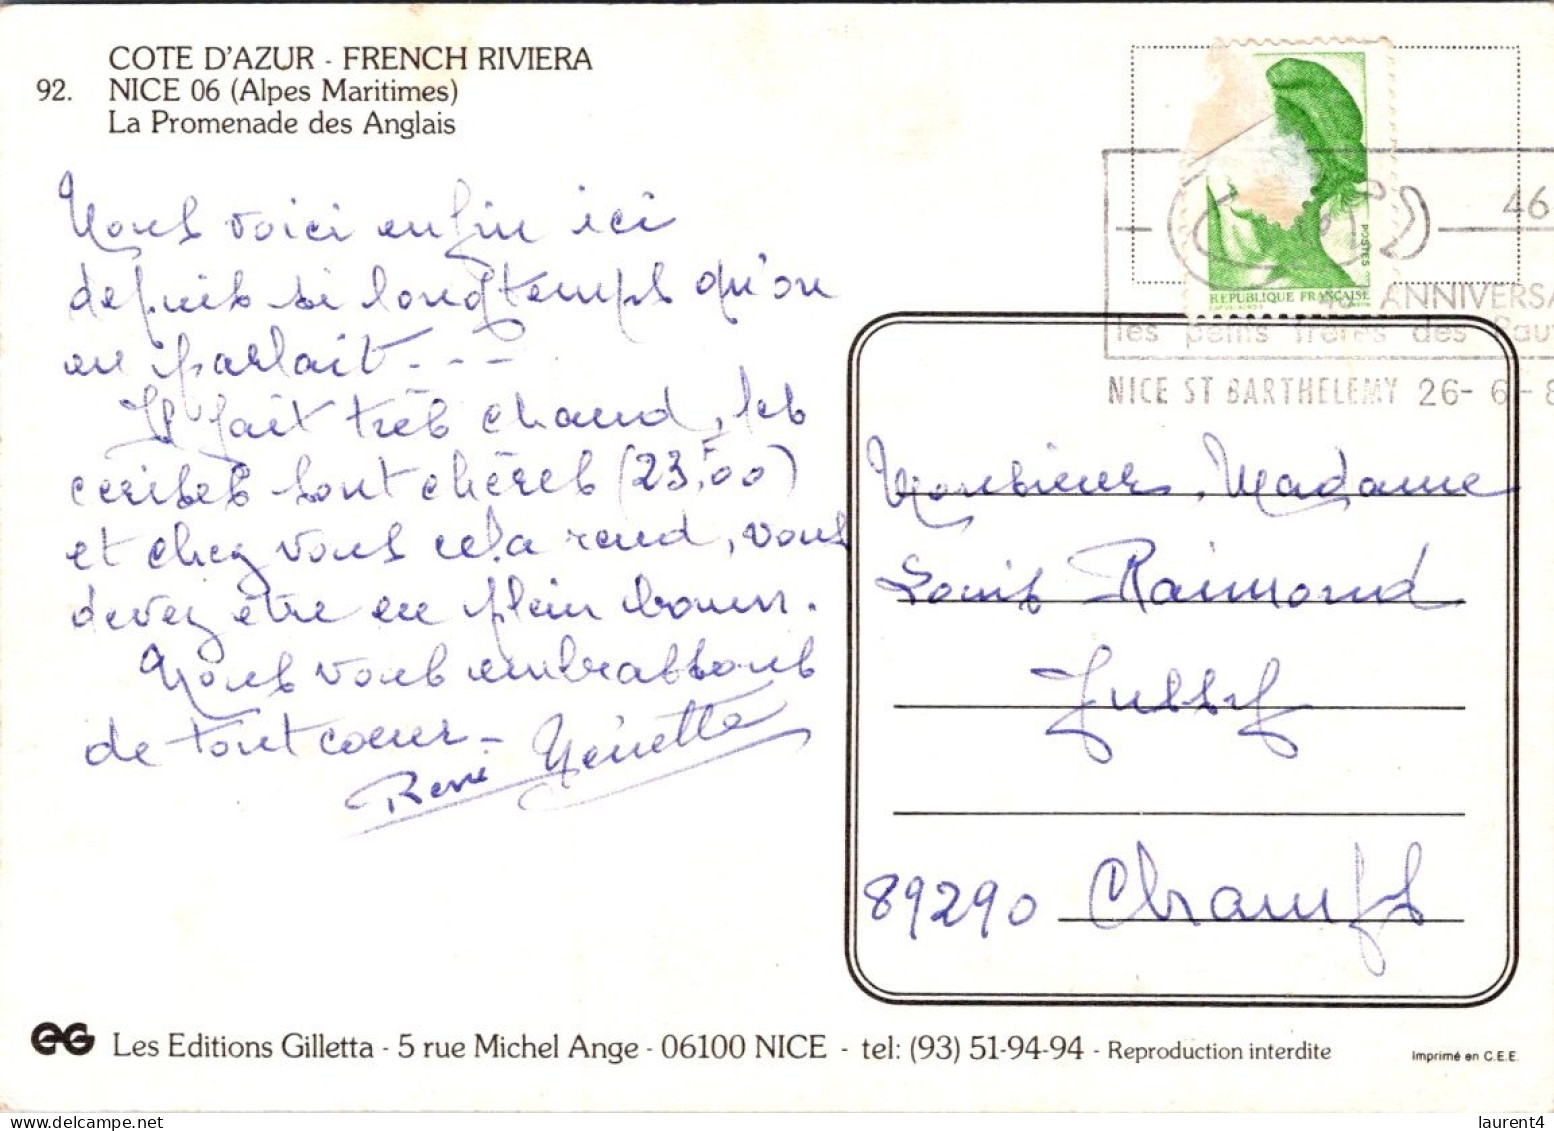 COTE D'AZUR - FRENCH RIVIERA
92. NICE 06 (Alpes Maritimes)
La Promenade des Anglais
Nous voici enfin ici
depuis si longtemps qu'on
en parlait - - -
Il fait très chaud, les
cerises sont chères (23,F00)
et chez vous cela rend, vous
devez être en plein boum.
Nous vous embrassons
de tout coeur -
René Ninette
POSTES
REPUBLIQUE FRANÇAISE
46
ANNIVERSA
les petits frères des Pauv
NICE ST BARTHELEMY 26-6-8
Monsieur, Madame
Louis Raimond
Jussy
89290 Champs
EG Les Editions Gilletta - 5 rue Michel Ange - 06100 NICE - tel: (93) 51-94-94 - Reproduction interdite
Imprimé en C.E.E.
laurent4